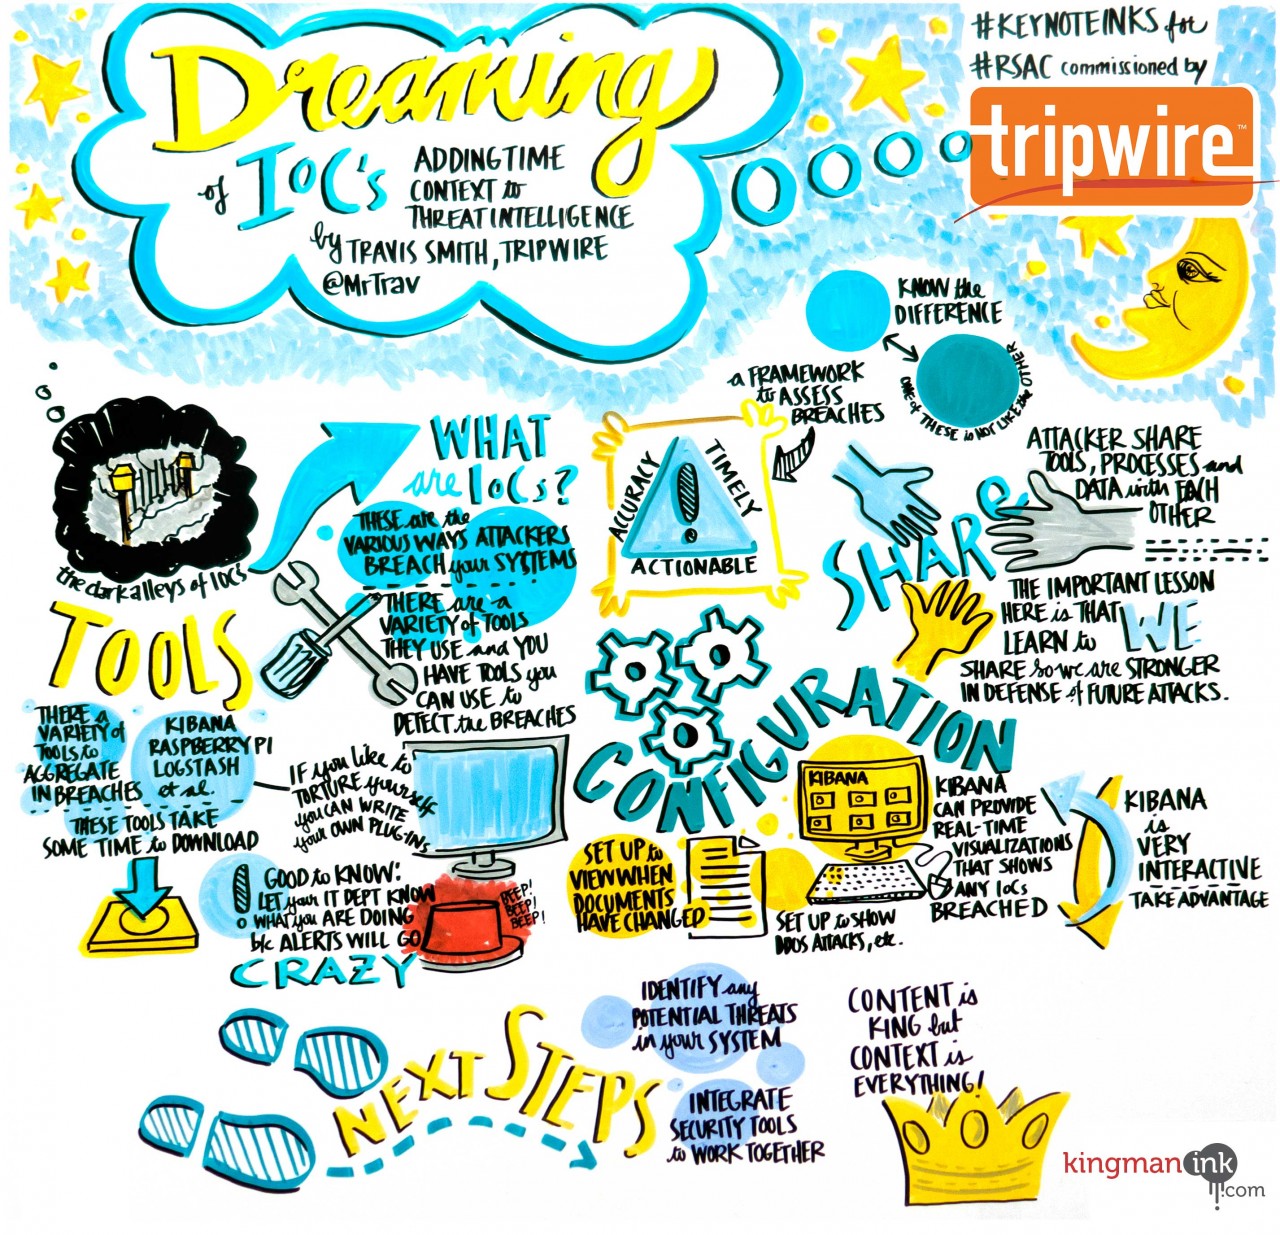 Dreaming
of IOC's
ADDING TIME
CONTEXT to
THREAT INTELLIGENCE
by TRAVIS SMITH, TRIPWIRE
@MrTrav
#KEYNOTEINKS for
#RSAC commissioned by
tripwire™
KNOW the
DIFFERENCE
ONE of THESE is NOT LIKE the OTHER
the dark alleys of IOCs
WHAT
are IoCs?
THESE are the
VARIOUS WAYS ATTACKERS
BREACH your SYSTEMS
THERE are a
VARIETY of TOOLS
THEY USE and YOU
HAVE TOOLS you
CAN USE to
DETECT the BREACHES
a FRAMEWORK
to ASSESS
BREACHES
ACCURACY
TIMELY
ACTIONABLE
SHARE
ATTACKER SHARE
TOOLS, PROCESSES and
DATA with EACH
OTHER
THE IMPORTANT LESSON
HERE is THAT WE
LEARN to
SHARE so we are STRONGER
IN DEFENSE of FUTURE ATTACKS.
TOOLS
THERE a
VARIETY of
TOOLS to
AGGREGATE
IN BREACHES
KIBANA
RASPBERRY PI
LOGSTASH
et al.
THESE TOOLS TAKE
SOME TIME to DOWNLOAD
IF you LIKE to
TORTURE yourself
you CAN WRITE
your OWN PLUG-INS
GOOD to KNOW:
LET your IT DEPT KNOW
WHAT you ARE DOING
b/c ALERTS WILL GO
CRAZY
BEEP!
BEEP!
BEEP!
CONFIGURATION
SET UP to
VIEW WHEN
DOCUMENTS
HAVE CHANGED
KIBANA
SET UP to SHOW
DDOS ATTACKS, etc.
KIBANA
CAN PROVIDE
REAL-TIME
VISUALIZATIONS
THAT SHOWS
ANY IoCs
BREACHED
KIBANA
is
VERY
INTERACTIVE
TAKE ADVANTAGE
NEXT STEPS
IDENTIFY any
POTENTIAL THREATS
in your SYSTEM
INTEGRATE
SECURITY TOOLS
to WORK TOGETHER
CONTENT is
KING but
CONTEXT is
EVERYTHING!
kingman ink
.com